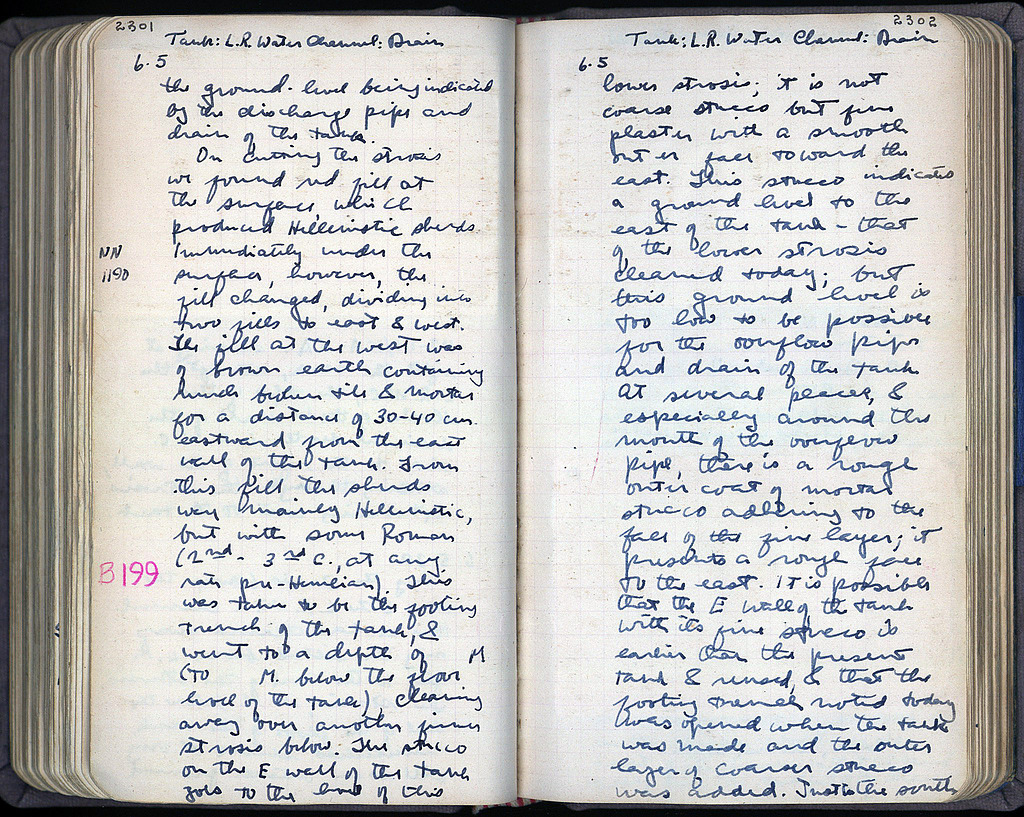 2301
Tank: L.R. Water Channel: Drain
6.5
the ground-level being indicated
by the discharge pipe and
drain of the tank.
On cutting the strosis
we found red fill at
the surface, which
produced Hellenistic sherds.
NN
1190
Immediately under the
surface, however, the
fill changed, dividing into
two fills to east & west.
The fill at the west was
of brown earth containing
much broken tile & mortar
for a distance of 30-40 cm.
eastward from the east
wall of the tank. From
this fill the sherds
were mainly Hellenistic,
but with some Roman
(2nd - 3rd C., at any
B199
rate pre-Herulian). This
was taken to be the footing
trench of the tank, &
went to a depth of M
(to M. below the floor
level of the tank), clearing
away over another finer
strosis below. The stucco
on the E wall of the tank
goes to the level of this
2302
Tank: L.R. Water Channel: Drain
6.5
lower strosis; it is not
coarse stucco but fine
plaster with a smooth
outer face toward the
east. This stucco indicates
a ground level to the
east of the tank - that
of the lower strosis
cleared today; but
this ground level is
too low to be possible
for the overflow pipe
and drain of the tank.
At several places, &
especially around the
mouth of the overflow
pipe, there is a rough
outer coat of mortar
stucco adhering to the
face of the fine layer; it
presents a rough face
to the east. It is possible
that the E wall of the tank
with its fine stucco is
earlier than the present
tank & reused, & that the
footing trench noted today
was opened when the tank
was made and the outer
layer of coarser stucco
was added. Just to the south